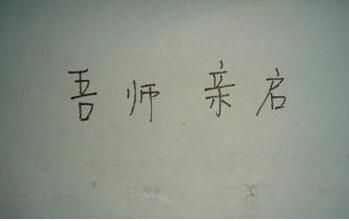 吾师 亲启